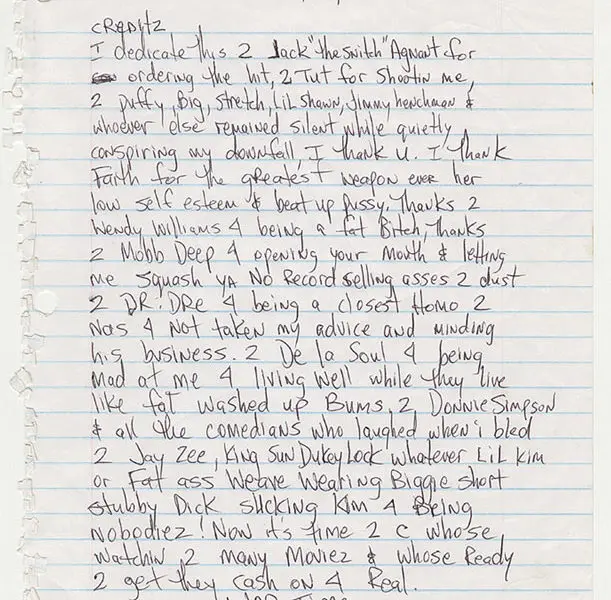 CREDITZ
I dedicate this 2 Jack "the snitch" Agnant for
ordering the hit, 2 Tut for shootin me,
2 puffy, Big, Stretch, Lil Shawn, Jimmy henchman &
whoever else remained silent while quietly
conspiring my downfall, I thank u. I thank
Faith for the greatest weapon ever her
low self esteem & beat up pussy. Thanks 2
Wendy Williams 4 being a fat Bitch, Thanks
2 Mobb Deep 4 opening your mouth & letting
me squash ya No Record selling asses 2 dust
2 DR. DRe 4 being a closest Homo 2
Nas 4 Not taken my advice and minding
his business. 2 De la Soul 4 being
mad at me 4 living well while they live
like fat washed up Bums, 2 Donnie Simpson
& all the comedians who laughed when i bled
2 Jay Zee, King Sun Dukey Lock whatever Lil Kim
or Fat ass Weave Wearing Biggie short
stubby Dick sucking Kim 4 Being
Nobodiez! Now it's time 2 c whose
watchin 2 many Moviez & whose Ready
2 get they cash on 4 Real.